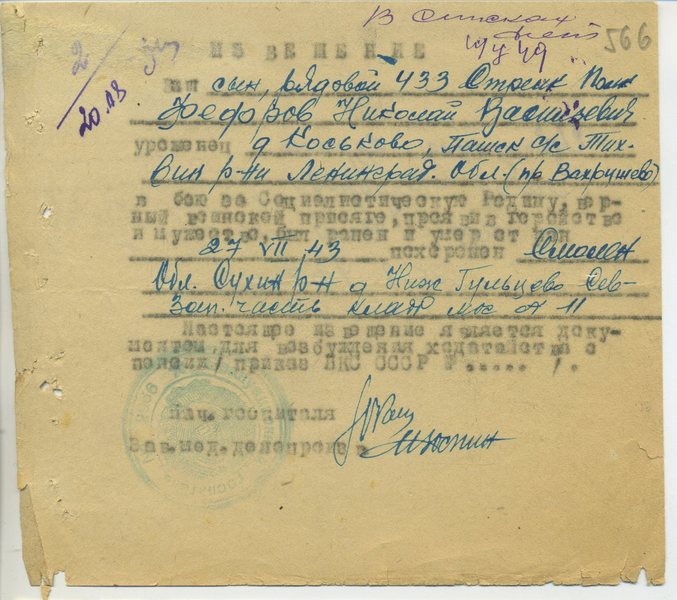 В списках
нет
566
2
20.18
ИЗВЕЩЕНИЕ
Ваш сын, рядовой 433 Стрелк Полк
Федоров Николай Васильевич
уроженец д Коськово, Пашск с/с Тих-
вин р-ни Ленинград. Обл. (пр Вахрушево)
в бою за Социалистическую Родину, вер-
ный воинской присяге, проявив геройство
и мужество, был ранен и умер от ран
27 VII 43 похоронен Смолен
Обл. Сухин р-н д Ниж Гульцово Сев-
Зап. часть клад
Настоящее извещение является доку-
ментом для возбуждения ходатайства о
пенсии / приказ НКО СССР № ..... /.
Нач. госпиталя
Зав. мед. делопроизв.